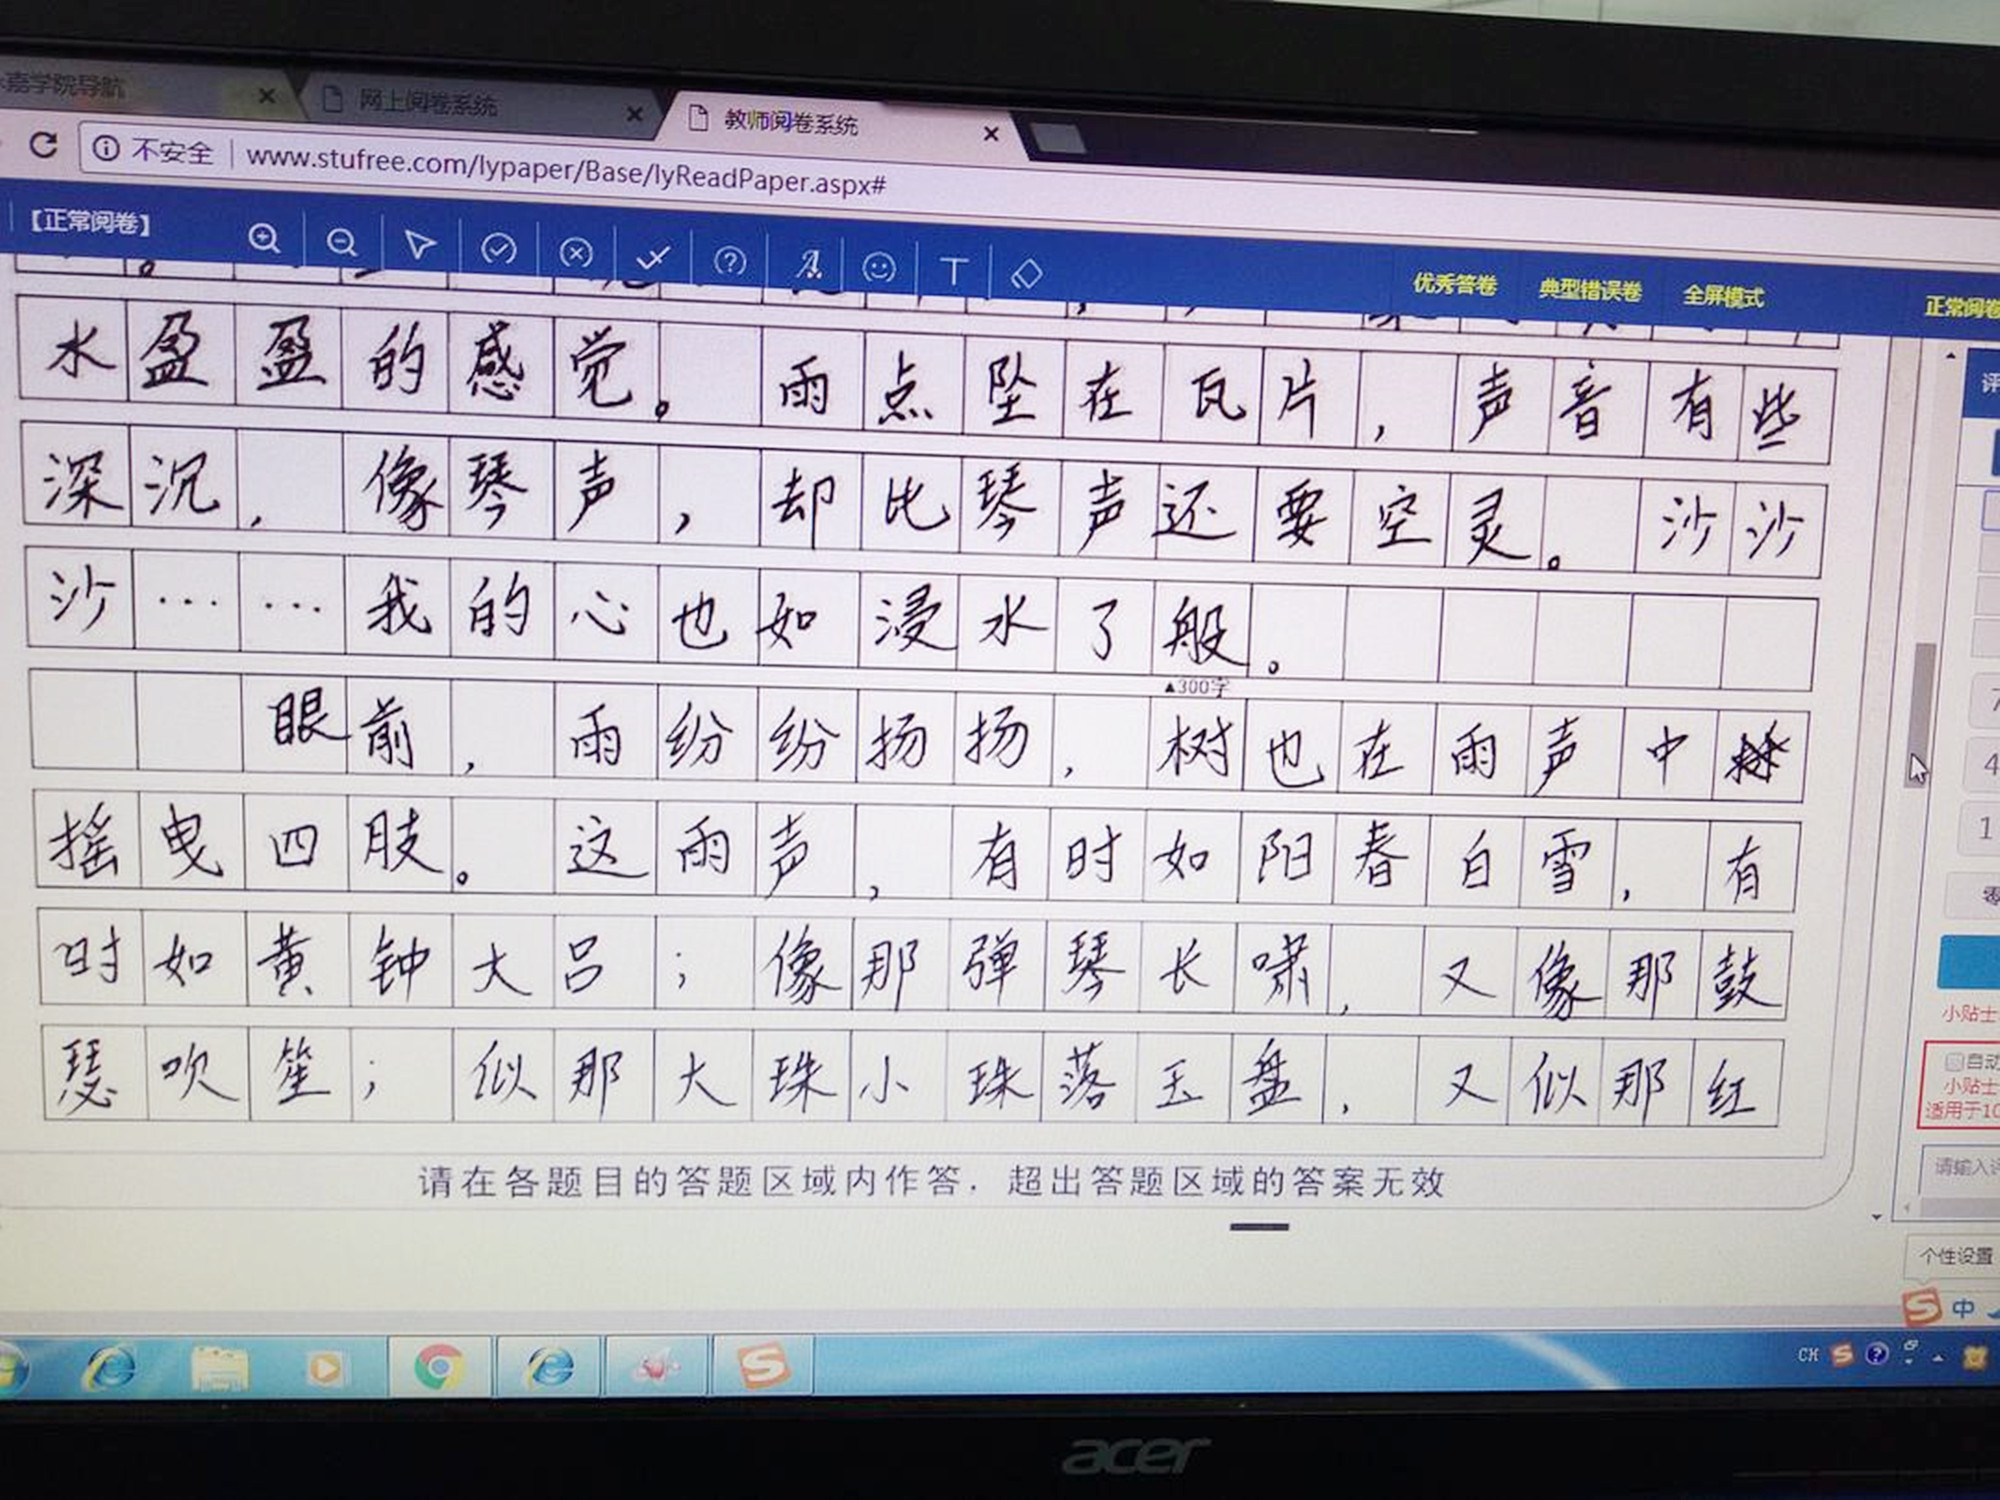 嘉学院导航
网上阅卷系统
教师阅卷系统
不安全 www.stufree.com/lypaper/Base/lyReadPaper.aspx#
【正常阅卷】
T
优秀答卷 典型错误卷 全屏模式 正常阅卷
水盈盈的感觉。雨点坠在瓦片，声音有些
深沉，像琴声，却比琴声还要空灵。沙沙
沙……我的心也如浸水了般。
▲300字
眼前，雨纷纷扬扬，树也在雨声中
摇曳四肢。这雨声，有时如阳春白雪，有
时如黄钟大吕；像那弹琴长啸，又像那鼓
瑟吹笙；似那大珠小珠落玉盘，又似那红
请在各题目的答题区域内作答，超出答题区域的答案无效
评
7
4
1
零
小贴士
自动
小贴士
适用于10
请输入
个性设置
中
CH
acer